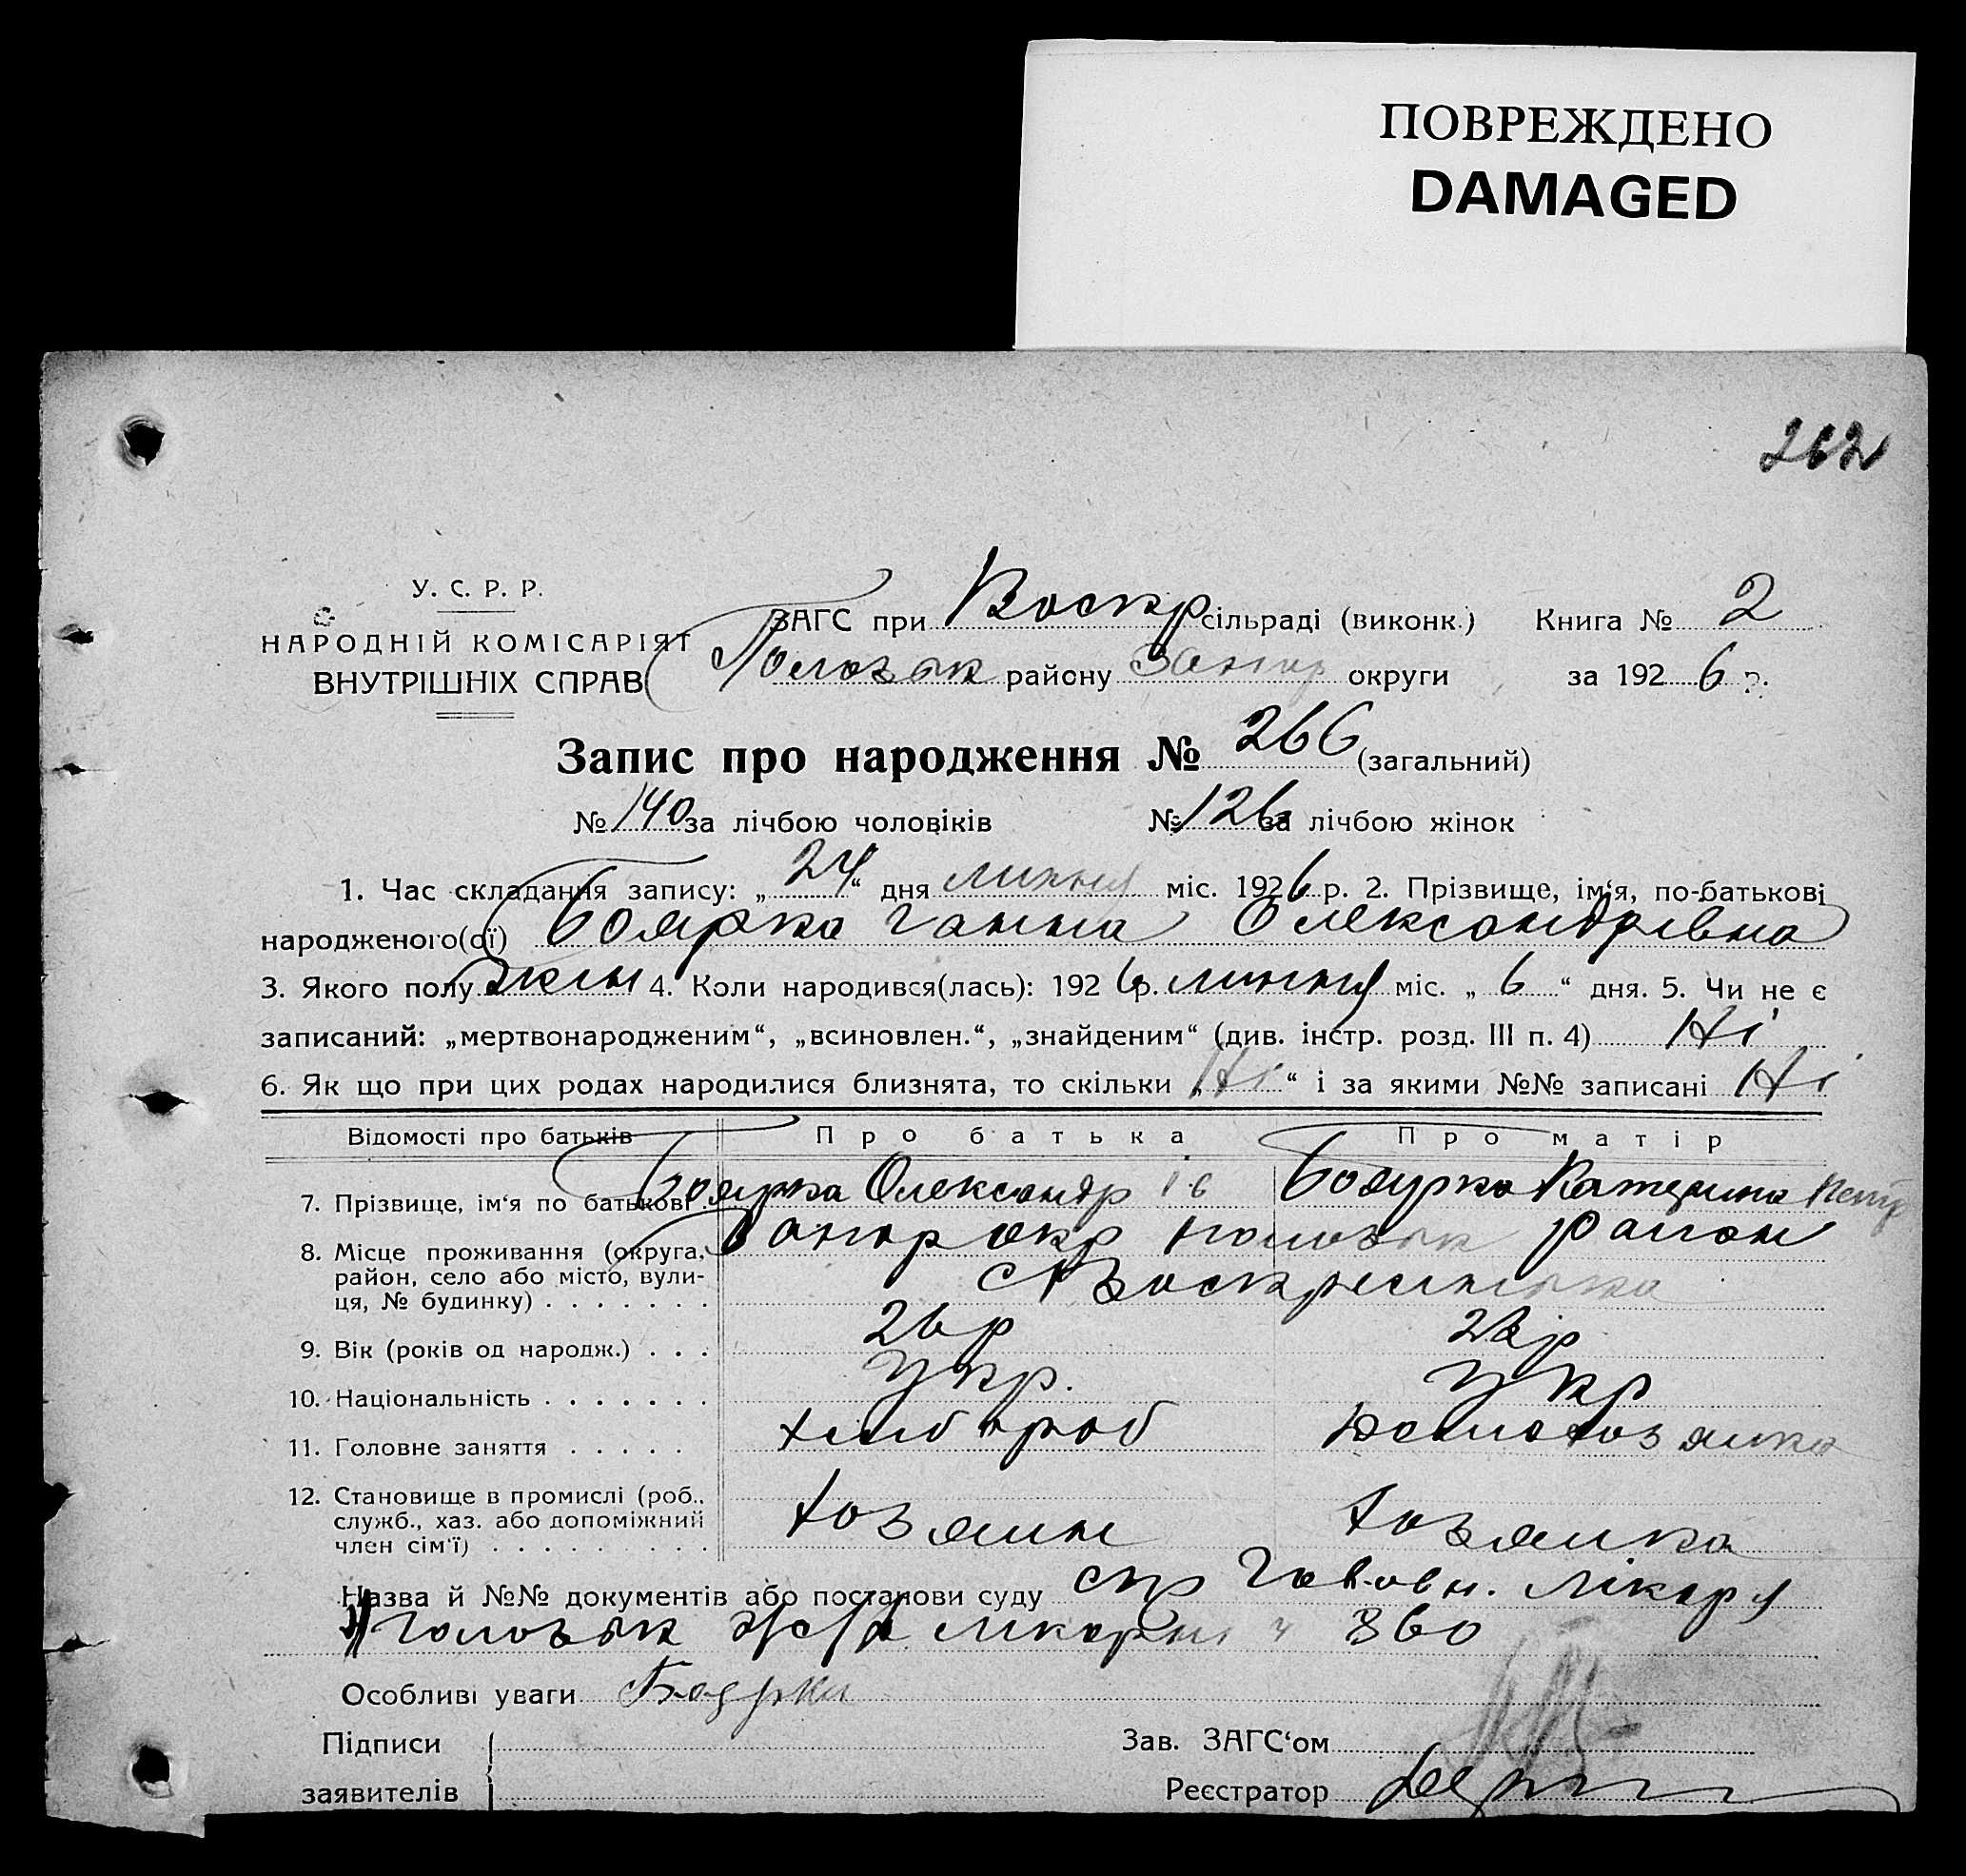 ПОВРЕЖДЕНО
DAMAGED
262
У. С. Р. Р.
НАРОДНІЙ КОМІСАРІЯТ
ВНУТРІШНІХ СПРАВ
ЗАГС при Воскр сільраді (виконк.) Книга № 2
району округи за 192 6 р.
Запис про народження № 266 (загальний)
№ 140 за лічбою чоловіків № 126 за лічбою жінок
1. Час складання запису: „ 24 “ дня липня міс. 192 6 р. 2. Прізвище, ім‘я, по-батькові
народженого(ої) Боярка Ганна Олександрівна
3. Якого полу жін 4. Коли народився(лась): 192 6 р. липня міс. „ 6 “ дня. 5. Чи не є
записаний: „мертвонародженим“, „всиновлен.“, „знайденим“ (див. інстр. розд. III п. 4) Ні
6. Як що при цих родах народилися близнята, то скільки „ Ні “ і за якими №№ записані Ні
Відомості про батьків Про батька Про матір
7. Прізвище, ім‘я по батькові Боярка Олександр Ів Боярка Катерина Петр
8. Місце проживання (округа, район
район, село або місто, вули- с Воскресенка
ця, № будинку)
9. Вік (років од народж.) 26 р р
10. Національність Укр. Укр
11. Головне заняття хлібороб
12. Становище в промислі (роб., хозяин хозяйка
служб., хаз. або допоміжний
член сім‘ї)
Назва й №№ документів або постанови суду лікаря
360
Особливі уваги Боярки
Підписи
Зав. ЗАГС‘ом
заявителів
Реєстратор